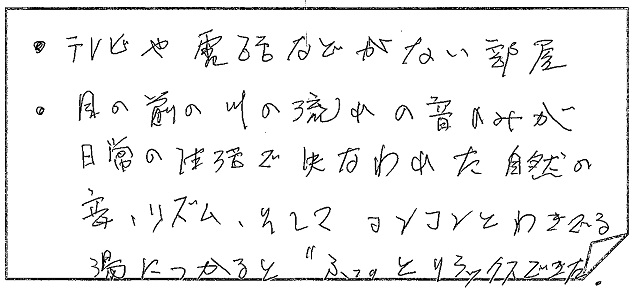 ・テレビや電話などがない部屋
・目の前の川の流れの音のみが
日常の生活で失なわれた自然の
音、リズム、そして コンコンとわきでる
湯につかると"ふっ。"とリラックスできた。